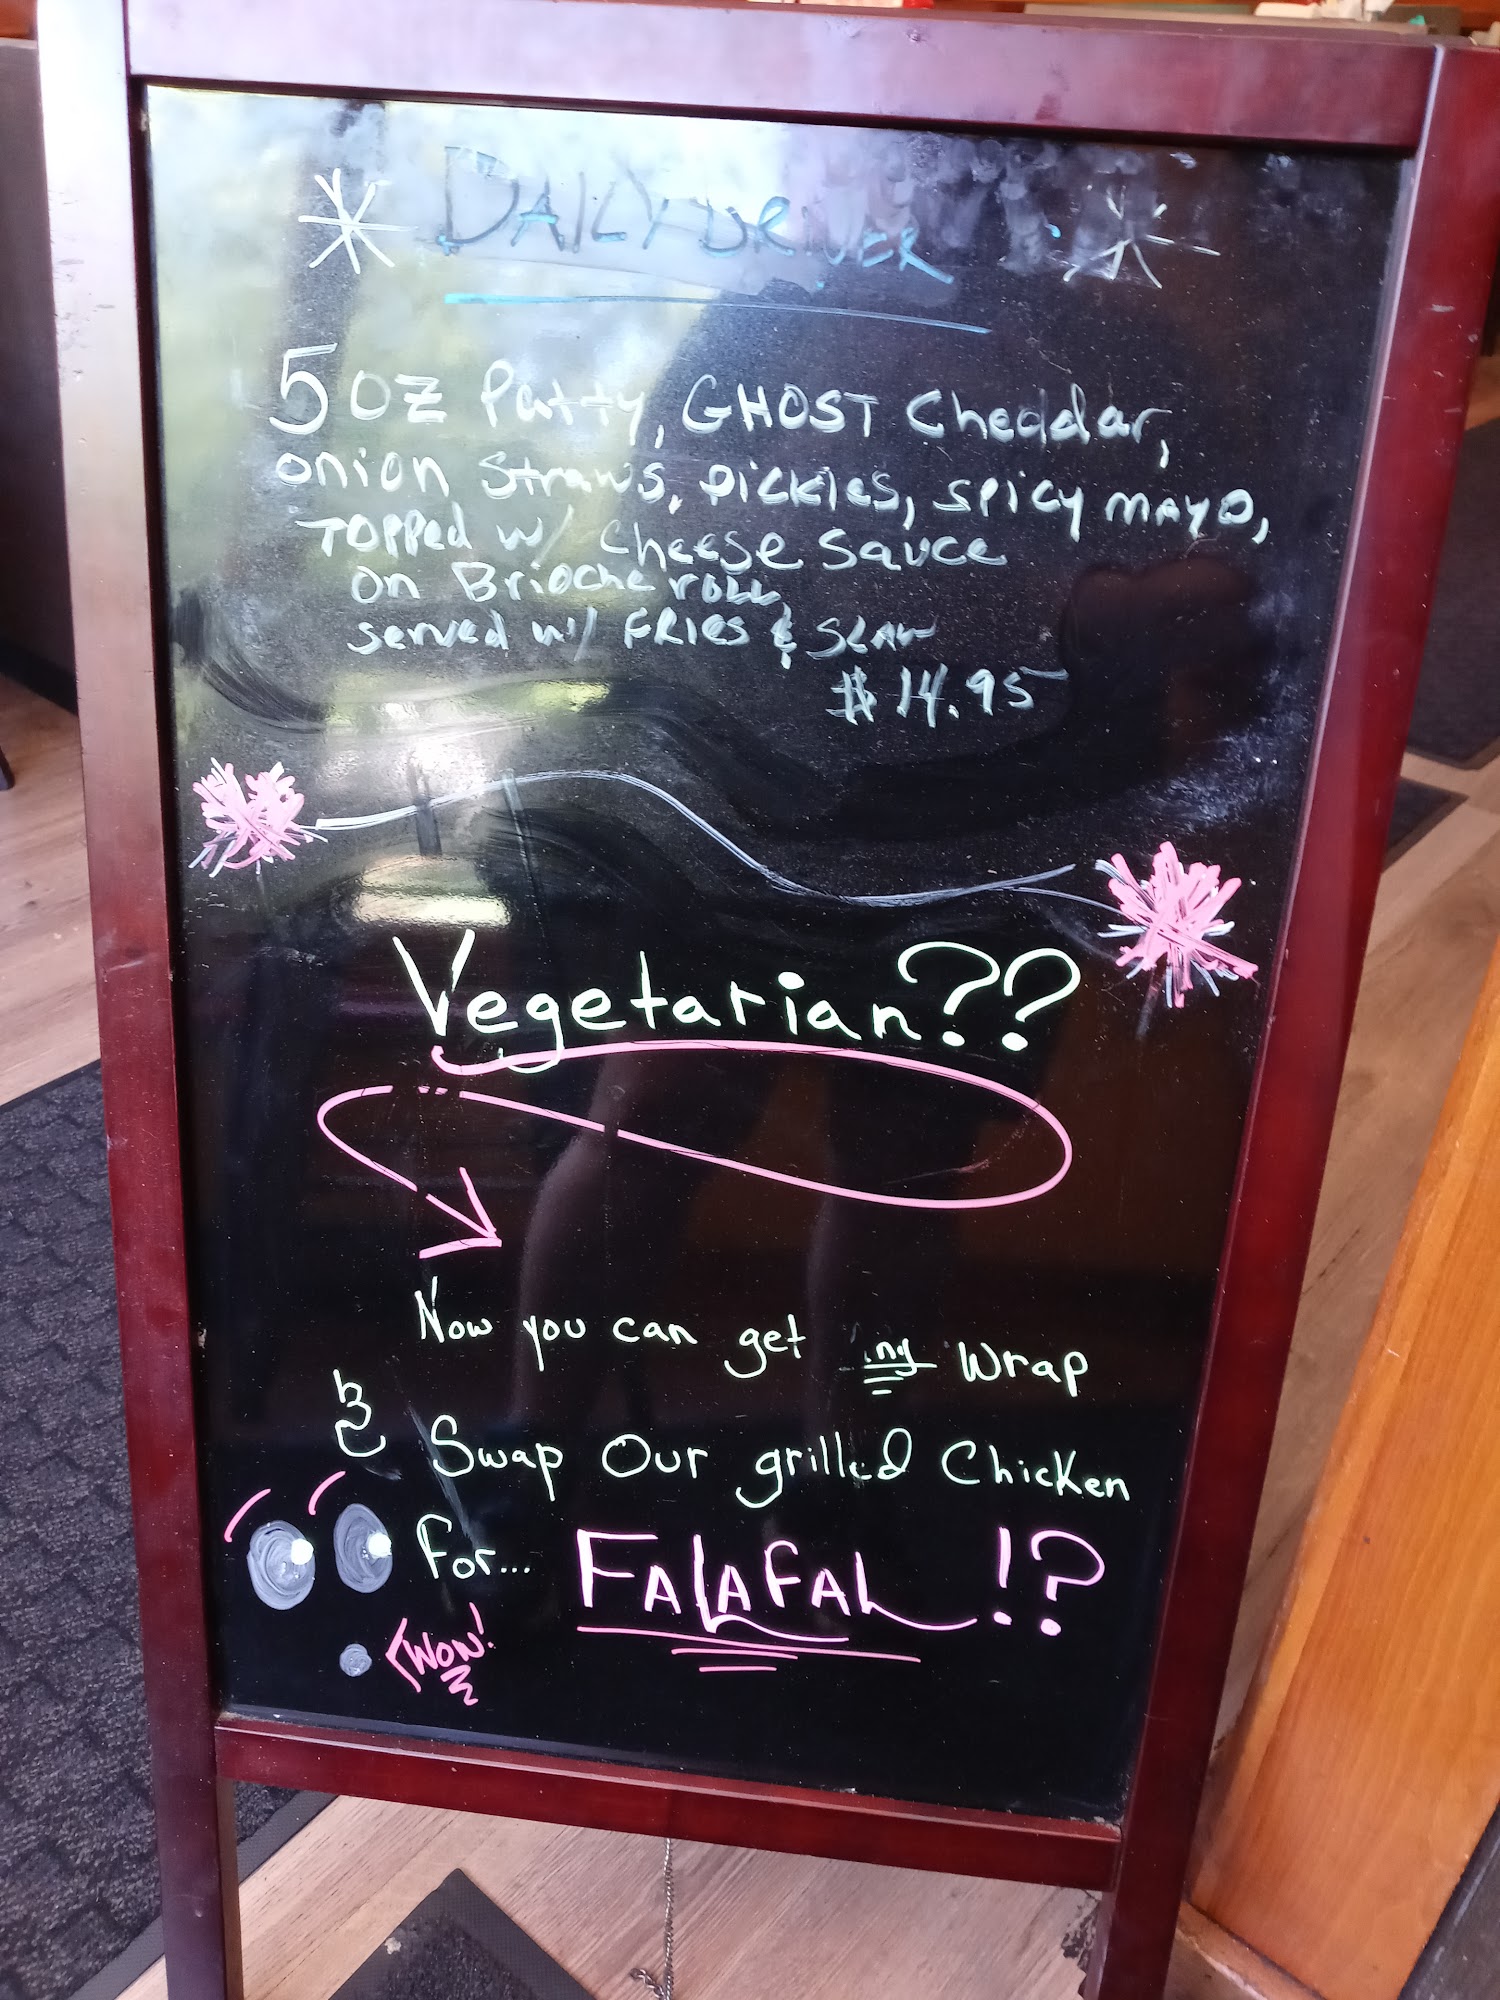 DAILY DRIVER
5 OZ Patty, GHOST Cheddar,
onion straws, pickles, spicy mayo,
TOPPed w/ cheese sauce
on Brioche roll
served w/ FRIES & SLAW
$14.95
Vegetarian??
Now you can get any Wrap
& Swap Our grilled Chicken
for... FALAFAL!?
WOW!